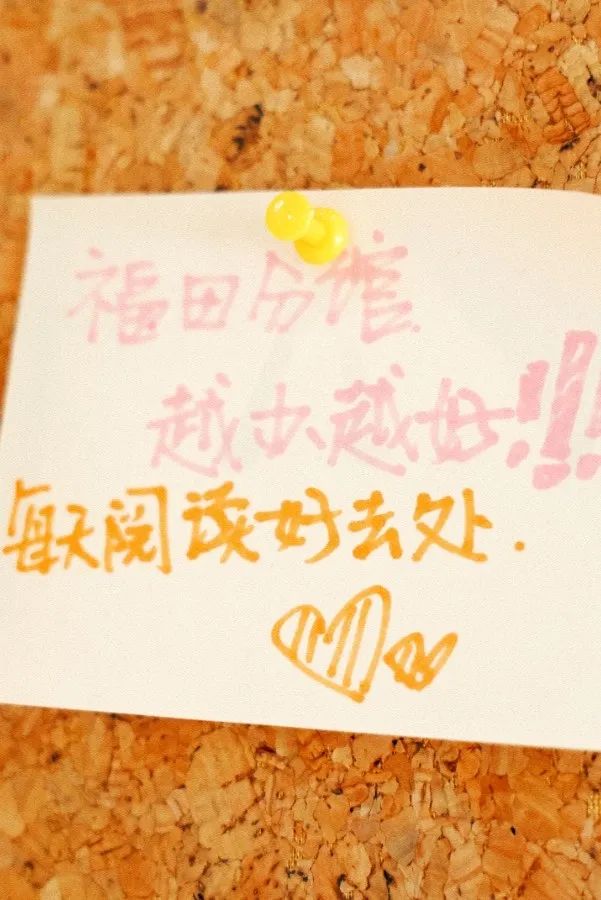 福田分馆
越办越好!!!
每天阅读好去处.